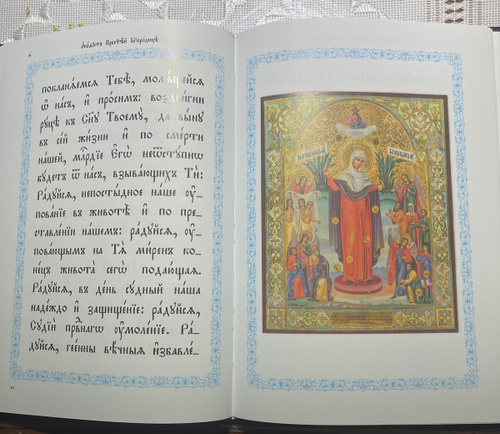 Акаѳістъ Пресвѧтѣй Бг҃ородицѣ
покланѧемсѧ Тебѣ, молѧщейсѧ
ѡ҆ на́съ, и҆ про́симъ: воздви́гни
рꙋ́цѣ къ Сн҃ꙋ Твоемꙋ̀, да вы́нꙋ
въ се́й жи́зни и҆ по сме́рти
на́шей, млⷭ҇рдїе Є҆гѡ̀ неѿстꙋ́пно
бꙋ́детъ ѿ на́съ, взыва́ющихъ Тѝ:
Ра́дꙋйсѧ, непосты́дное на́ше ᲂу҆-
пова́нїе въ животѣ̀ и҆ по пре-
ставле́нїи на́шемъ: ра́дꙋйсѧ, ᲂу҆-
пова́ющымъ на Тѧ̀ ми́ренъ ко-
не́цъ живота̀ сегѡ̀ подаю́щаѧ.
Ра́дꙋйсѧ, въ де́нь сꙋ́дный на́ша
наде́ждо и҆ защище́нїе: ра́дꙋйсѧ,
Сꙋдїѝ прⷡ҇наго ᲂу҆моле́нїе. Ра́-
дꙋйсѧ, гее́нны вѣ́чныѧ и҆збавле́-